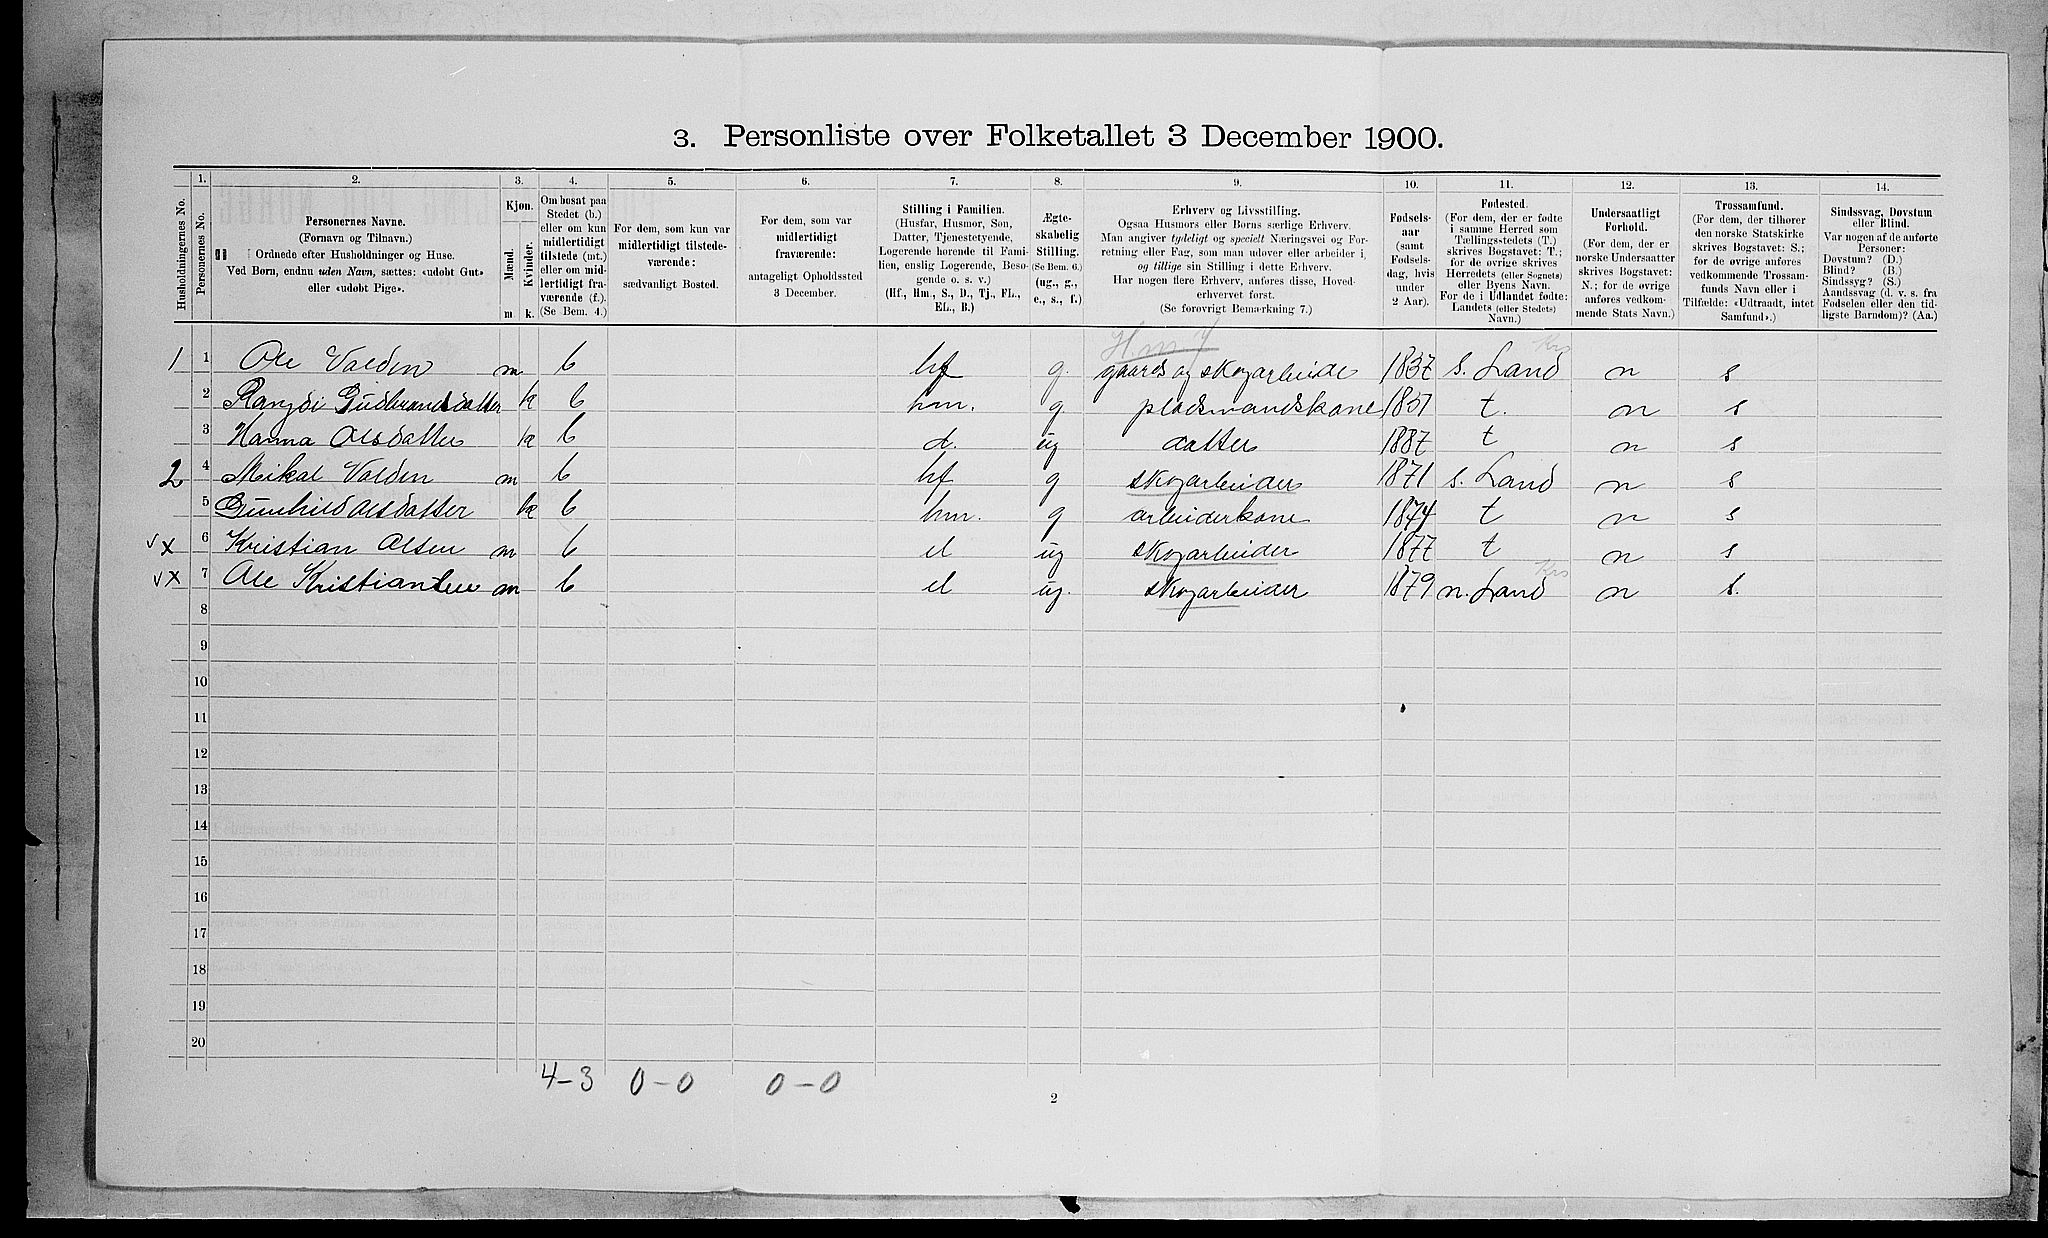 3. Personliste over Folketallet 3 December 1900.
Husholdningernes No.
1. Personernes No.
2. Personernes Navne. (Fornavn og Tilnavn.) Ordnede efter Husholdninger og Huse. Ved Børn, endnu uden Navn, sættes: «udøbt Gut» eller «udøbt Pige».
3. Kjøn. Mænd. m. Kvinder. k.
4. Om bosat paa Stedet (b.) eller om kun midlertidigt tilstede (mt.) eller om midlertidigt fraværende (f.). (Se Bem. 4.)
5. For dem, som kun var midlertidigt tilstedeværende: sædvanligt Bosted.
6. For dem, som var midlertidigt fraværende: antageligt Opholdssted 3 December.
7. Stilling i Familien. (Husfar, Husmor, Søn, Datter, Tjenestetyende, Logerende hørende til Familien, enslig Logerende, Besøgende o. s. v.) (Hf., Hm., S., D., Tj., FL., EL., B.)
8. Ægteskabelig Stilling. (Se Bem. 6.) (ug., g., e., s., f.)
9. Erhverv og Livsstilling. Ogsaa Husmors eller Børns særlige Erhverv. Man angiver tydeligt og specielt Næringsvei og Forretning eller Fag, som man udøver eller arbeider i, og tillige sin Stilling i dette Erhverv. Har nogen flere Erhverv, anføres disse, Hovederhvervet først. (Se forøvrigt Bemærkning 7.)
10. Fødselsaar (samt Fødselsdag, hvis under 2 Aar).
11. Fødested. (For dem, der er fødte i samme Herred som Tællingsstedets (T.) skrives Bogstavet: T.; for de øvrige skrives Herredets (eller Sognets) eller Byens Navn. For de i Udlandet fødte: Landets (eller Stedets) Navn.)
12. Undersaatligt Forhold. (For dem, der er norske Undersaatter skrives Bogstavet: N.; for de øvrige anføres vedkommende Stats Navn.)
13. Trossamfund. (For dem, der tilhører den norske Statskirke skrives Bogstavet: S.; for de øvrige anføres vedkommende Trossamfunds Navn eller i Tilfælde: «Udtraadt, intet Samfund».)
14. Sindssvag, Døvstum eller Blind. Var nogen af de anførte Personer: Døvstum? (D.) Blind? (B.) Sindssyg? (S.) Aandssvag (d. v. s. fra Fødselen eller den tidligste Barndom)? (Aa.)
H.m. Krs
1 1 Ole Valden m b hf g. gaards og skogarbeide 1837 s. Land n s
2 Rangdi Gudbrandsdatter k b hm. g. pladsmandskone 1831 t. n s
3 Hanna Olsdatter k b d. ug datter 1887 t n s
2 4 Mikal Valden m b hf g skogarbeider 1871 s. Land n s
5 Gunhild Olsdatter k b hm. g arbeiderkone 1874 t n s
vx 6 Kristian Olsen m b el ug skogarbeider 1877 t n s
Krs
vx 7 Ole Kristiansen m b el ug. skogarbeider 1879 n. Land n s.
8
9
10
11
12
13
14
15
16
17
18
19
20
4-3 0-0 0-0
2